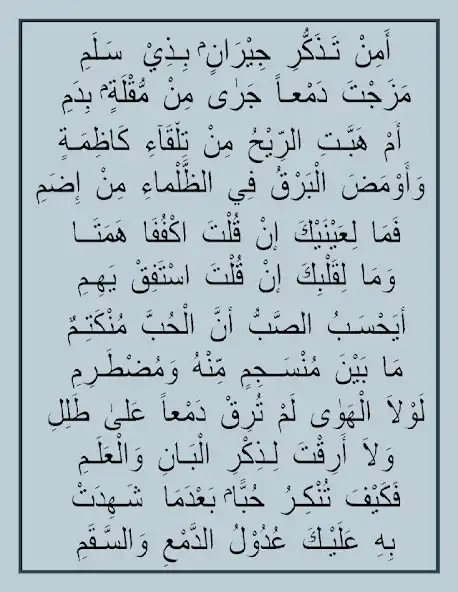 أَمِنْ تَذَكُّرِ جِيْرَانٍۢ بِذِيْ سَلَمِ
مَزَجْتَ دَمْعاً جَرٰى مِنْ مُّقْلَةٍۢ بِدَمِ
أَمْ هَبَّتِ الرِّيْحُ مِنْ تِلْقَآءِ كَاظِمَةٍ
وَأَوْمَضَ الْبَرْقُ فِي الظَّلْماءِ مِنْ إِضَمِ
فَمَا لِعَيْنَيْكَ إنْ قُلْتَ اكْفُفَا هَمَتَا
وَمَا لِقَلْبِكَ إنْ قُلْتَ اسْتَفِقْ يَهِمِ
أيَحْسَبُ الصَّبُّ أنَّ الْحُبَّ مُنْكَتِمٌ
مَا بَيْنَ مُنْسَجِمٍ مِّنْهُ وَمُضْطَرِمِ
لَوْلاَ الْهَوٰى لَمْ تُرِقْ دَمْعاً عَلىٰ طَلَلِ
وَلاَ أَرِقْتَ لِذِكْرِ الْبَانِ وَالْعَلَمِ
فَكَيْفَ تُنْكِرُ حُبًّاۢ بَعْدَمَا شَهِدَتْ
بِهِ عَلَيْكَ عُدُوْلُ الدَّمْعِ وَالسَّقَمِ